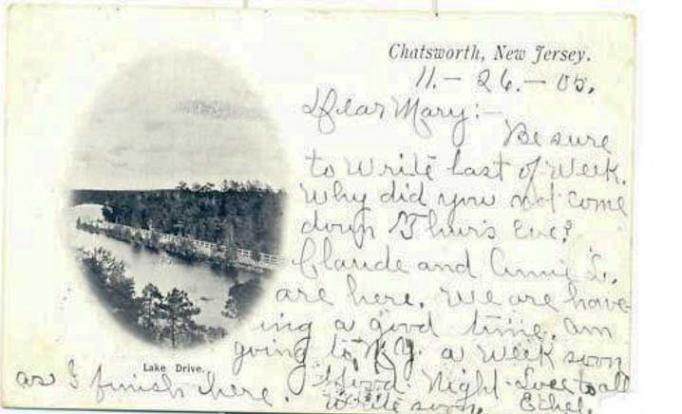 Chatsworth, New Jersey.
11. - 26. - 05.
Dear Mary:-
Be sure
to write last of week.
Why did you not come
down Thur's Eve?
Claude and Annie L.
are here. We are have-
ing a good time. Am
going to N.Y. a week soon
as I finish here. Good Night - Love to all
Write soon Ethel.
Lake Drive.